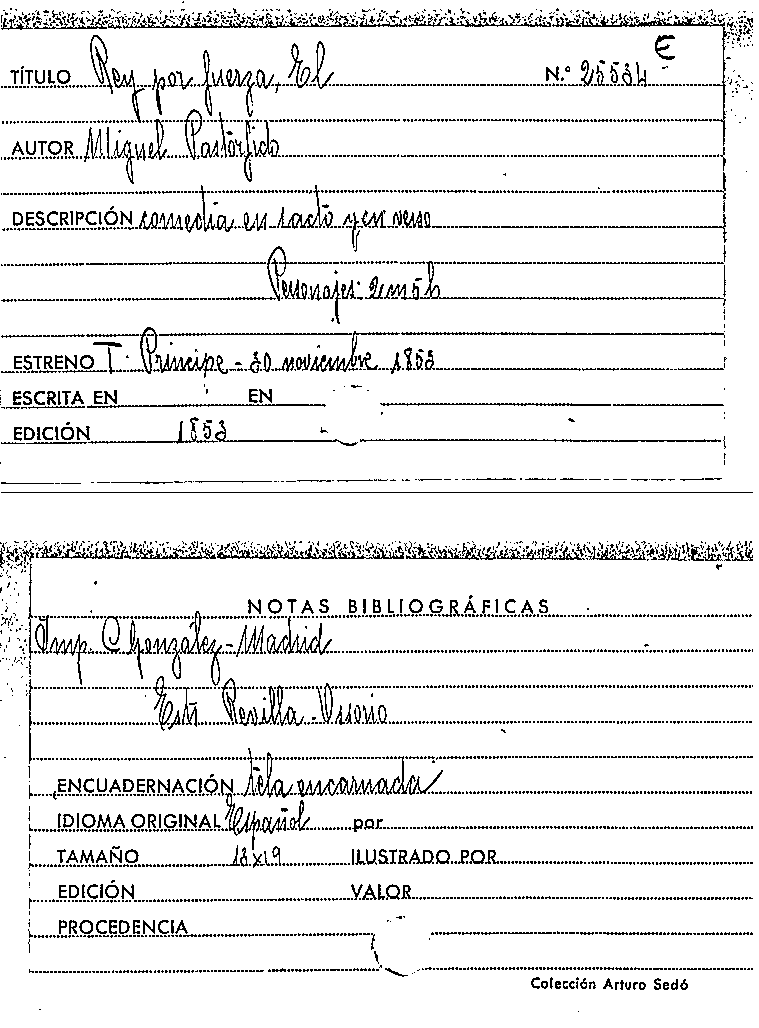 E
TÍTULO Rey por fuerza, El N.º 25534
AUTOR Miguel Pastorfido
DESCRIPCIÓN comedia en 1 acto y en verso
Personajes: 2m5h
ESTRENO T. Príncipe - 30 noviembre 1853
ESCRITA EN EN
EDICIÓN 1853
NOTAS BIBLIOGRÁFICAS
Imp. C González - Madrid
Estr. Revilla - Ossorio
ENCUADERNACIÓN tela encarnada
IDIOMA ORIGINAL Español por
TAMAÑO 13x19 ILUSTRADO POR
EDICIÓN VALOR
PROCEDENCIA
Colección Arturo Sedó